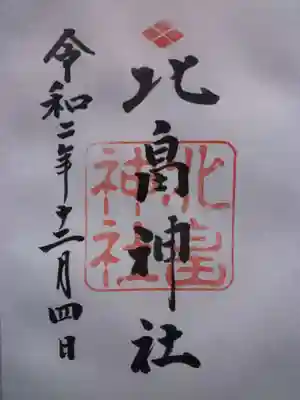 北畠神社
令和二年十二月四日
北畠
神社